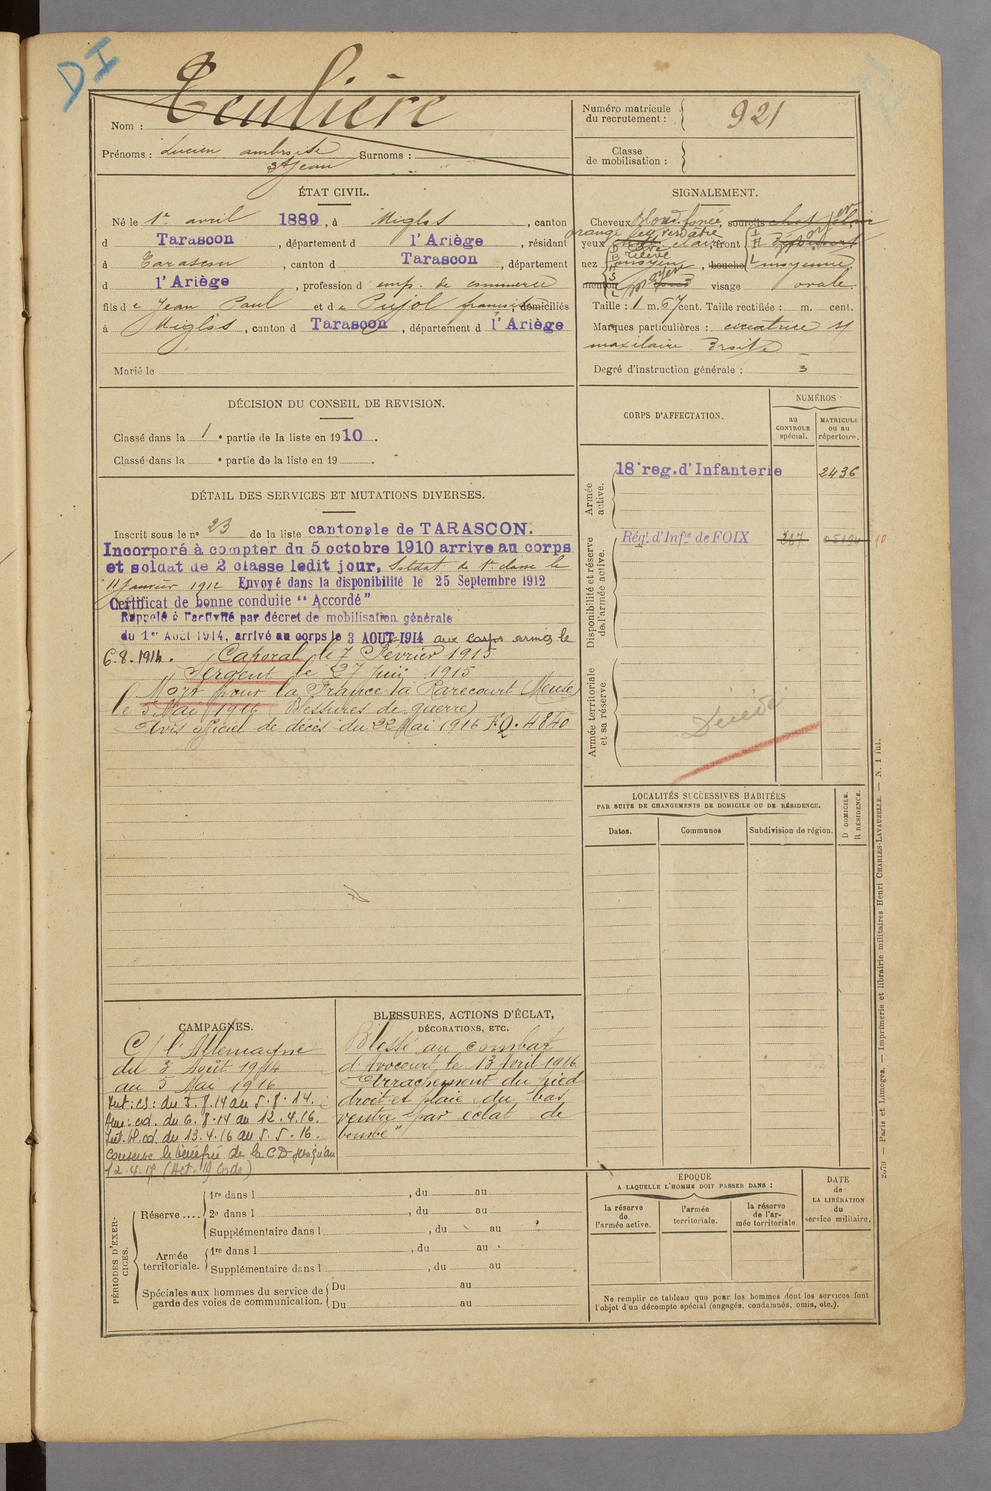 DI
Teulière
Nom :
Prénoms : Lucien ambroise Surnoms :
St Jean
Numéro matricule
du recrutement : 921
Classe
de mobilisation :
ÉTAT CIVIL.
Né le 1er avril 1889, à Miglos, canton
d Tarascon, département d l'Ariège, résidant
à Tarascon, canton d Tarascon, département
d l'Ariège, profession d emp. de commerce
fils de Jean Paul et de Pujol françoise, domiciliés
à Miglos, canton d Tarascon, département d l'Ariège
Marié le
SIGNALEMENT.
Cheveux Blond foncé, sourcils
orange verdâtre
yeux clair front
nez moyen, bouche moyenne
menton visage ovale.
Taille : 1 m. 67 cent. Taille rectifiée : m. cent.
Marques particulières : cicatrice
maxilaire droite
Degré d'instruction générale : 3
DÉCISION DU CONSEIL DE REVISION.
Classé dans la 1 e partie de la liste en 1910.
Classé dans la e partie de la liste en 19 .
CORPS D'AFFECTATION.
NUMÉROS
au
CONTROLE
spécial.
MATRICULE
ou au
répertoire.
Armée
active.
18e reg. d'Infanterie 2436
Disponibilité et réserve
de l'armée active.
Régt d'Infie de FOIX 287
Armée territoriale
et sa réserve.
Décédé
DÉTAIL DES SERVICES ET MUTATIONS DIVERSES.
Inscrit sous le no 23 de la liste cantonale de TARASCON.
Incorporé à compter du 5 octobre 1910 arrive au corps
et soldat de 2 classe ledit jour. Soldat de 1re classe le
11 janvier 1912 Envoyé dans la disponibilité le 25 Septembre 1912
Certificat de bonne conduite "Accordé"
Rappelé à l'activité par décret de mobilisation générale
du 1er Août 1914, arrivé au corps le 3 AOUT 1914 aux armées le
6.8.1914. Caporal le 7 Février 1915
Sergent le 27 juin 1915
Mort pour la France à Rarecourt (Meuse)
le 5 Mai 1916 (Blessures de guerre)
Avis officiel de décès du 22 Mai 1916 F.O. 4840
LOCALITÉS SUCCESSIVES HABITÉES
PAR SUITE DE CHANGEMENTS DE DOMICILE OU DE RÉSIDENCE.
Dates.
Communes
Subdivision de région.
D DOMICILE.
R RÉSIDENCE.
CAMPAGNES.
C/ l'Allemagne
du 3 Août 1914
au 5 Mai 1916
Int: cs: du 3.8.14 au 5.8.14.
Arm: cd. du 6.8.14 au 12.4.16.
Int. bl. cd. du 13.4.16 au 5.5.16.
Conserve le bénéfice de la CD jusqu'au
12.4.17
BLESSURES, ACTIONS D'ÉCLAT,
DÉCORATIONS, ETC.
Blessé au combat
d'Avocourt le 13 avril 1916
"Arrachement du pied
droit et plaie du bas
ventre par éclat de
bombe"
PÉRIODES D'EXERCICES.
Réserve ....
1re dans l , du au
2e dans l , du au
Supplémentaire dans l , du au
Armée
territoriale.
1re dans l , du au
Supplémentaire dans l , du au
Spéciales aux hommes du service de
garde des voies de communication.
Du au
Du au
ÉPOQUE
A LAQUELLE L'HOMME DOIT PASSER DANS :
la réserve
de
l'armée active.
l'armée
territoriale.
la réserve
de l'ar-
mée territoriale.
DATE
de
LA LIBÉRATION
du
service militaire.
Ne remplir ce tableau que pour les hommes dont les services font
l'objet d'un décompte spécial (engagés, condamnés, omis, etc.).
Paris et Limoges. — Imprimerie et librairie militaires Henri CHARLES-LAVAUZELLE. — N. 1